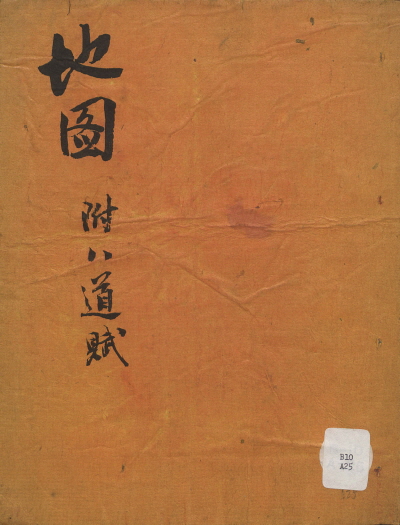 地圖
附八道賦
B10
A25